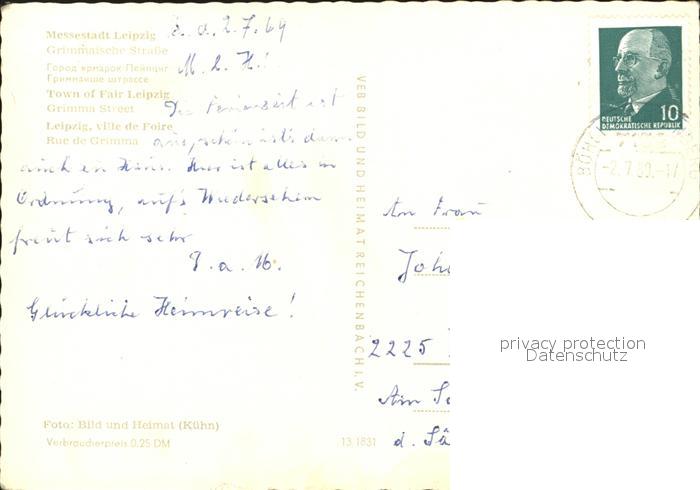 Messestadt Leipzig
Grimmaische Straße
Город ярмарок Лейпциг
Гриммаише штрассе
Town of Fair Leipzig
Grimma Street
Leipzig, ville de Foire
Rue de Grimma
d. 2.7.69
M. L. H.!
Die Ferienzeit ist
schön ist's dann
auch en Haus. Hier ist alles in
Ordnung, auf's Wiedersehen
freut sich sehr
Glückliche Heimreise!
Foto: Bild und Heimat (Kühn)
Verbraucherpreis 0,25 DM
13 1831
VEB BILD UND HEIMAT REICHENBACH I. V.
10
DEUTSCHE
DEMOKRATISCHE REPUBLIK
BÖHL
-2.7.69.-17
An Frau
Joh
2225
Am
d. Sä
privacy protection
Datenschutz